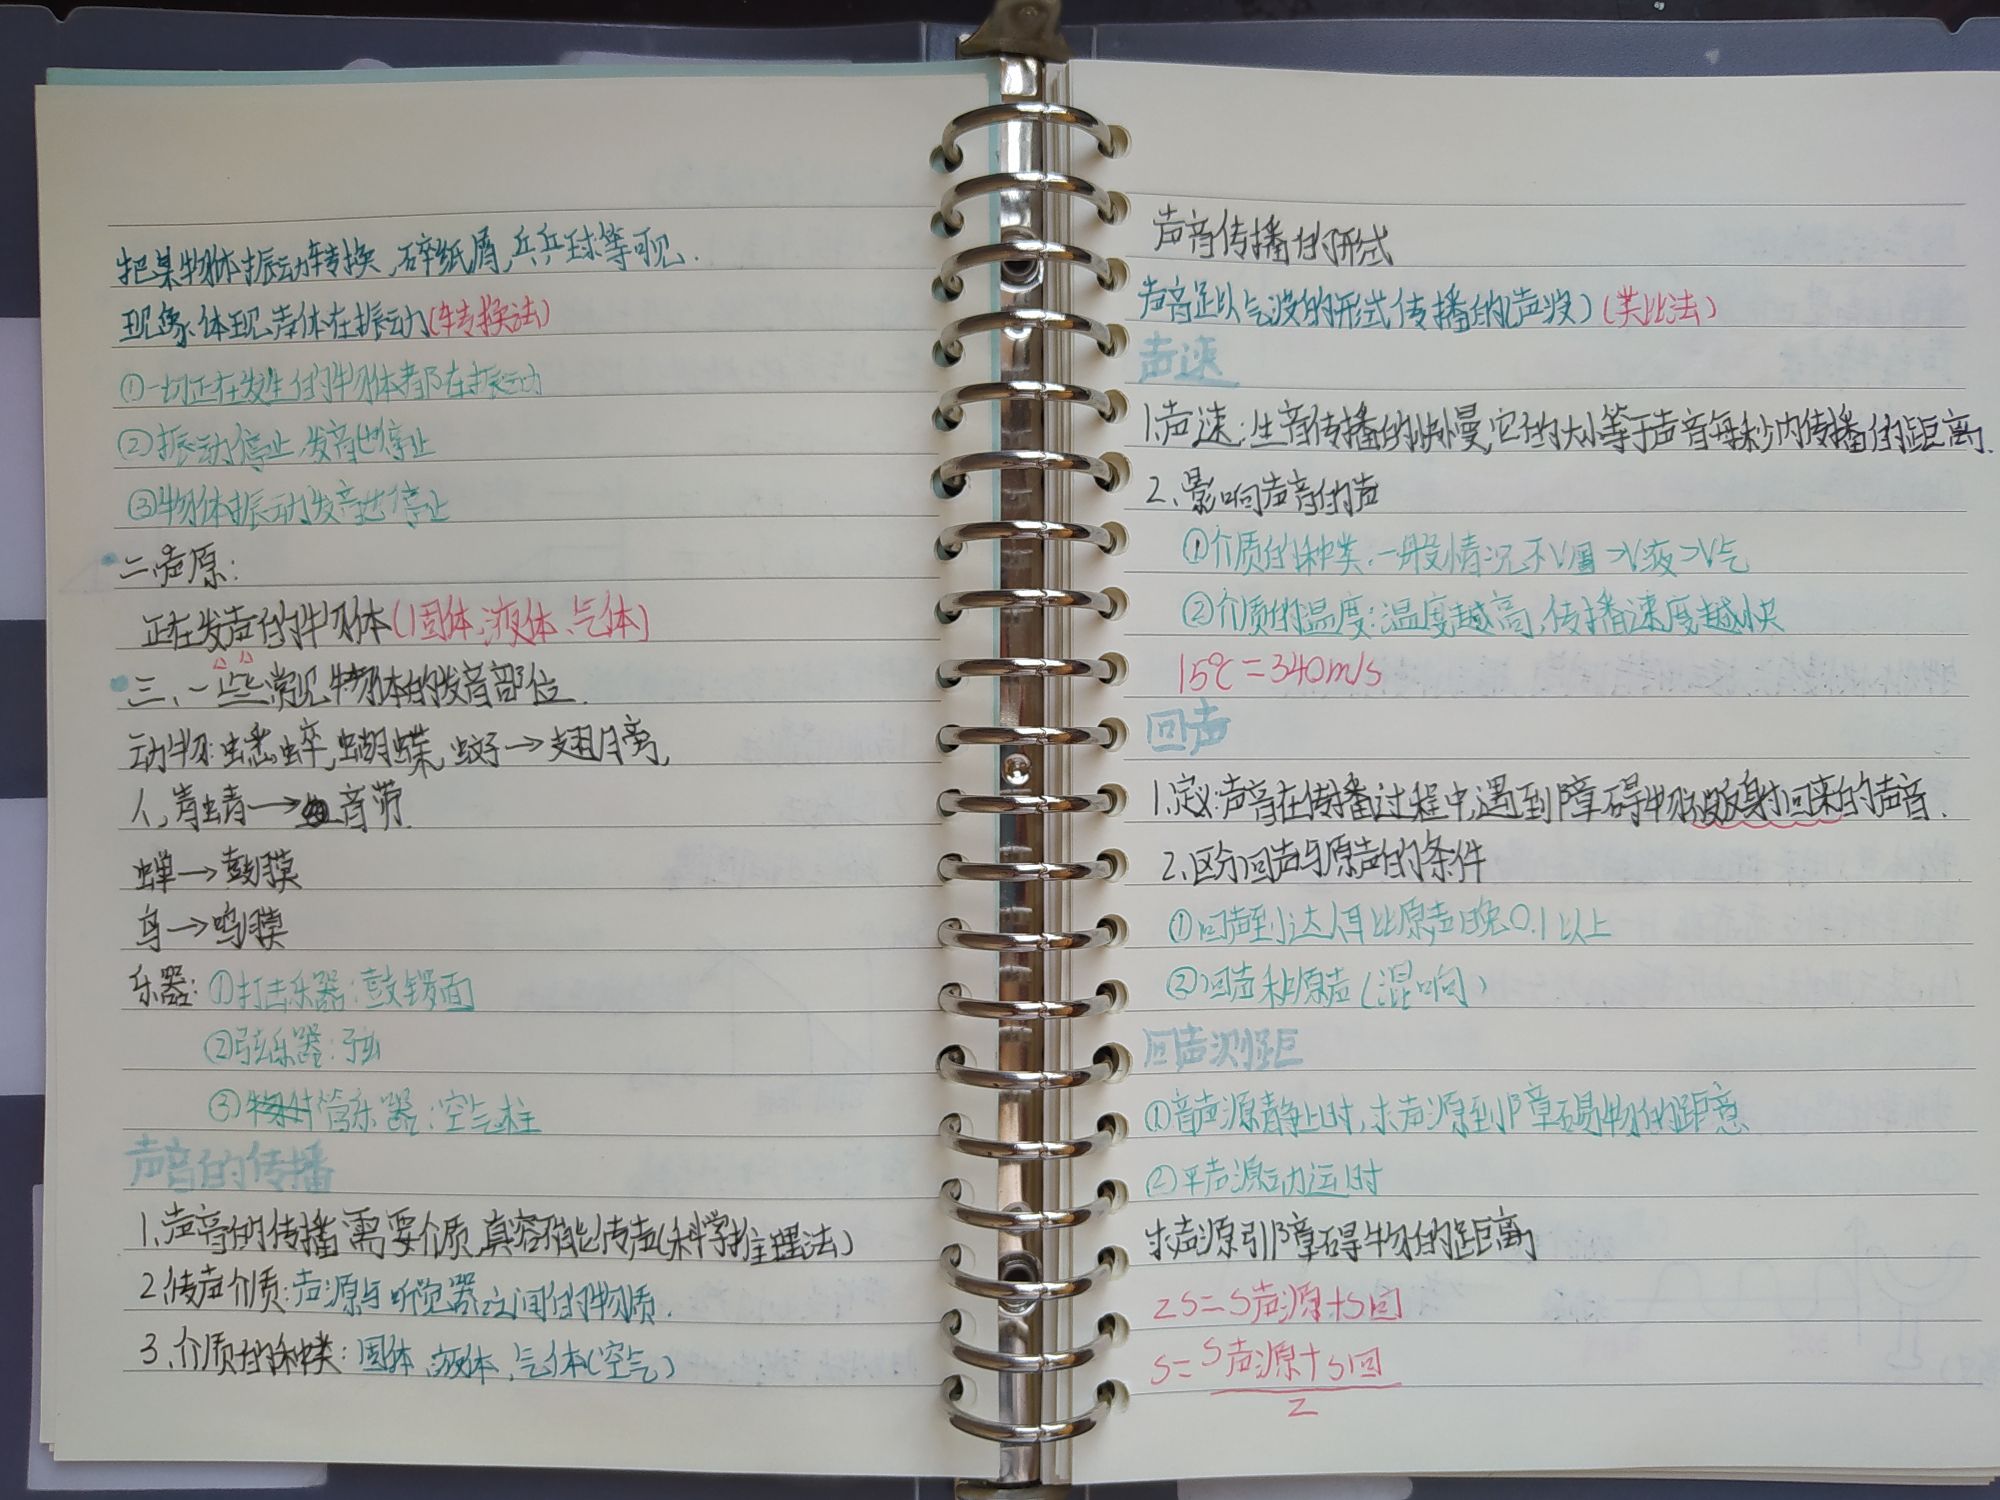 把某物体振动转换,碎纸屑,乒乓球等可见.
现象.体现声体在振动(转换法)
①一切正在发生的物体都在振动
②振动停止,发音也停止
③物体振动发音也停止
二、声原:
正在发声的物体(固体、液体、气体)
三、一些常见物体的发音部位.
动物:蟋蟀,蝴蝶,蚊子→翅膀,
人,青蛙→音带.
蝉→鼓膜
鸟→鸣膜
乐器:①打击乐器:鼓锣面
②弦乐器:弦
③管乐器:空气柱
声音的传播
1、声音的传播需要介质,真容不能传声(科学推理法)
2、传声介质:声源与听觉器之间的物质.
3、介质的种类:固体、液体、气体(空气)
声音传播的形式
声音是以气波的形式传播的(声波)(类比法)
声速
1、声速:生音传播的快慢,它的大小等于声音每秒内传播的距离.
2、影响声音的声
①介质的种类.一般情况下V固>V液>V气
②介质的温度:温度越高,传播速度越快
15℃=340m/s
回声
1、定义:声音在传播过程中,遇到障碍物被反射回来的声音.
2、区分回声与原声的条件
①回声到达人耳比原声晚0.1以上
②回声和原声(混响)
回声测距
①音声源静止时,求声源到障碍物的距意
②平声源动运时
求声源引障碍物的距离
2S=S声源+S回
S=S声源+S回
2